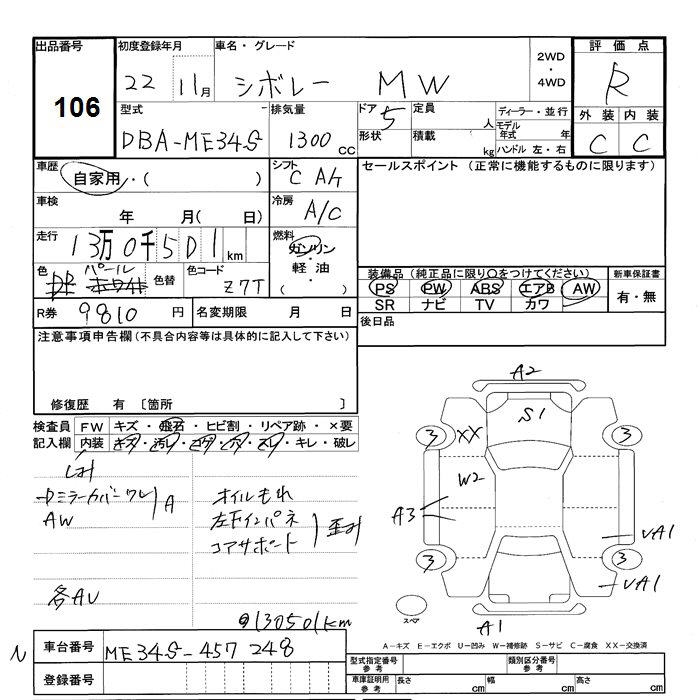 出品番号
106
初度登録年月
22 11月
車名・グレード
シボレー MW
2WD
・
4WD
評価点
R
外装 内装
C C
型式
DBA-ME34S
排気量
1300 cc
ドア
5
形状
定員
人
積載
kg
ディーラー・並行
モデル年式 年
ハンドル 左・右
車歴
自家用・( )
シフト
C A/T
車検
年 月( 日)
冷房
A/C
走行
13万0千501km
燃料
ガソリン
軽油
・( )
色
パール
ホワイト
色替
色コード
Z7T
R券
9810円
名変期限 月 日
セールスポイント(正常に機能するものに限ります)
装備品(純正品に限り〇をつけてください)
PS PW ABS エアB AW
SR ナビ TV カワ
新車保証書
有・無
後日品
注意事項申告欄(不具合内容等は具体的に記入して下さい)
修復歴 有 〔箇所 〕
検査員記入欄
FW キズ・飛石・ヒビ割・リペア跡・×要
内装 キズ・汚れ・コゲ・穴・スレ・キレ・破レ
中ミラーカバーワレ
AW
A
各AU
オイルもれ
左下インパネ
コアサポート
歪み
130501km
A2
S1
3 XX 3
W2
A3
UA1
3 3
UA1
スペア
A1
A−キズ E−エクボ U−凹み W−補修跡 S−サビ C−腐食 XX−交換済
N
車台番号
ME34S-457248
登録番号
型式指定番号
参考
類別区分番号
参考
車庫証明用
参考
長さ cm 幅 cm 高さ cm